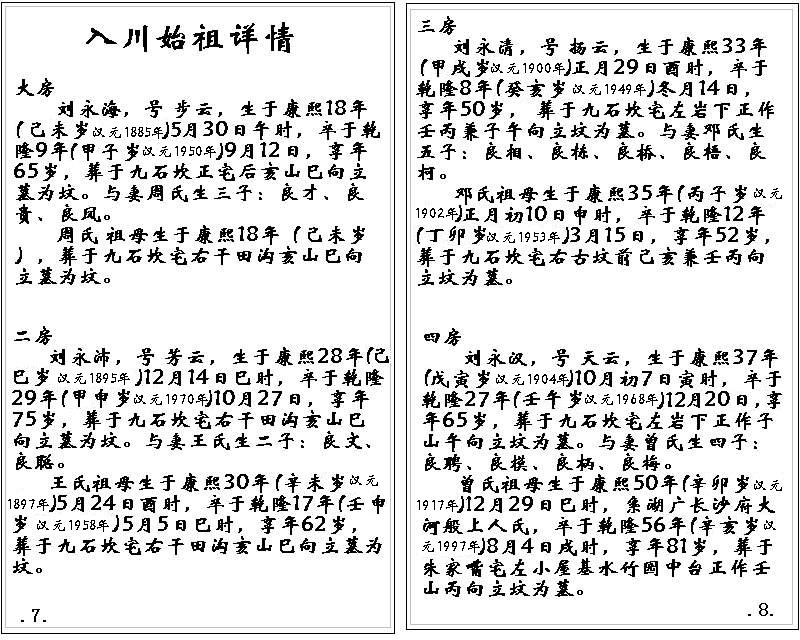 入川始祖详情
大房
刘永海，号 步云，生于康熙18年
(己未岁汉元1885年)5月30日午时，卒于乾
隆9年(甲子岁汉元1950年)9月12日，享年
65岁，葬于九石坎正宅后亥山巳向立
墓为坟。与妻周氏生三子：良才、良
贵、良凤。
周氏 祖母生于康熙18年（己未岁
），葬于九石坎宅右干田沟亥山巳向
立墓为坟。
二房
刘永沛，号 芳云，生于康熙28年(己
巳岁 汉元1895年 )12月14日巳时，卒于乾隆
29年(甲申岁汉元1970年)10月27日，享年
75岁，葬于九石坎宅右干田沟亥山巳
向立墓为坟。与妻王氏生二子：良文、
良聪。
王氏祖母生于康熙30年(辛未岁汉元
1897年)5月24日酉时，卒于乾隆17年(壬申
岁 汉元1958年)5月5日巳时，享年62岁，
葬于九石坎宅右干田沟亥山巳向立墓为
坟。
.7.
三房
刘永清，号 扬云，生于康熙33年
(甲戌岁汉元1900年)正月29日酉时，卒于
乾隆8年(癸亥岁汉元1949年)冬月14日，
享年50岁， 葬于九石坎宅左岩下正作
壬丙兼子午向立坟为墓。与妻邓氏生
五子：良相、良栋、良桥、良梧、良
柯。
邓氏祖母生于康熙35年(丙子岁汉元
1902年)正月初10日申时，卒于乾隆12年
(丁卯岁汉元1953年)3月15日，享年52岁，
葬于九石坎宅右古坟前己亥兼壬丙向
立坟为墓。
四房
刘永汉，号 天云，生于康熙37年
(戊寅岁汉元1904年)10月初7日寅时，卒于
乾隆27年(壬午岁汉元1968年)12月20日,享
年65岁，葬于九石坎宅左岩下正作子
山午向立坟为墓。与妻曾氏生四子：
良聘、良模、良柄、良梅。
曾氏祖母生于康熙50年(辛卯岁汉元
1917年)12月29日巳时，系湖广长沙府大
河般上人氏，卒于乾隆56年(辛亥岁汉
元1997年)8月4日戌时，享年81岁，葬于
朱家嘴宅左小屋基水竹园中台正作壬
山丙向立坟为墓。
.8.